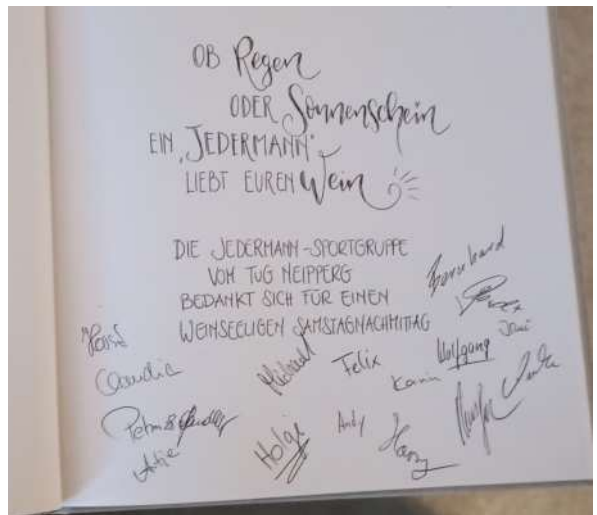 OB Regen
ODER Sonnenschein
EIN „JEDERMANN"
LIEBT EUREN Wein
DIE JEDERMANN-SPORTGRUPPE
VOM TUG NEIPPERG
BEDANKT SICH FÜR EINEN
WEINSEELIGEN SAMSTAGNACHMITTAG
Bernhard
Horst
Jani
Claudia
Michael
Felix
Wolfgang
Karin
Petra &
Antje
Holge
Andy
Harry